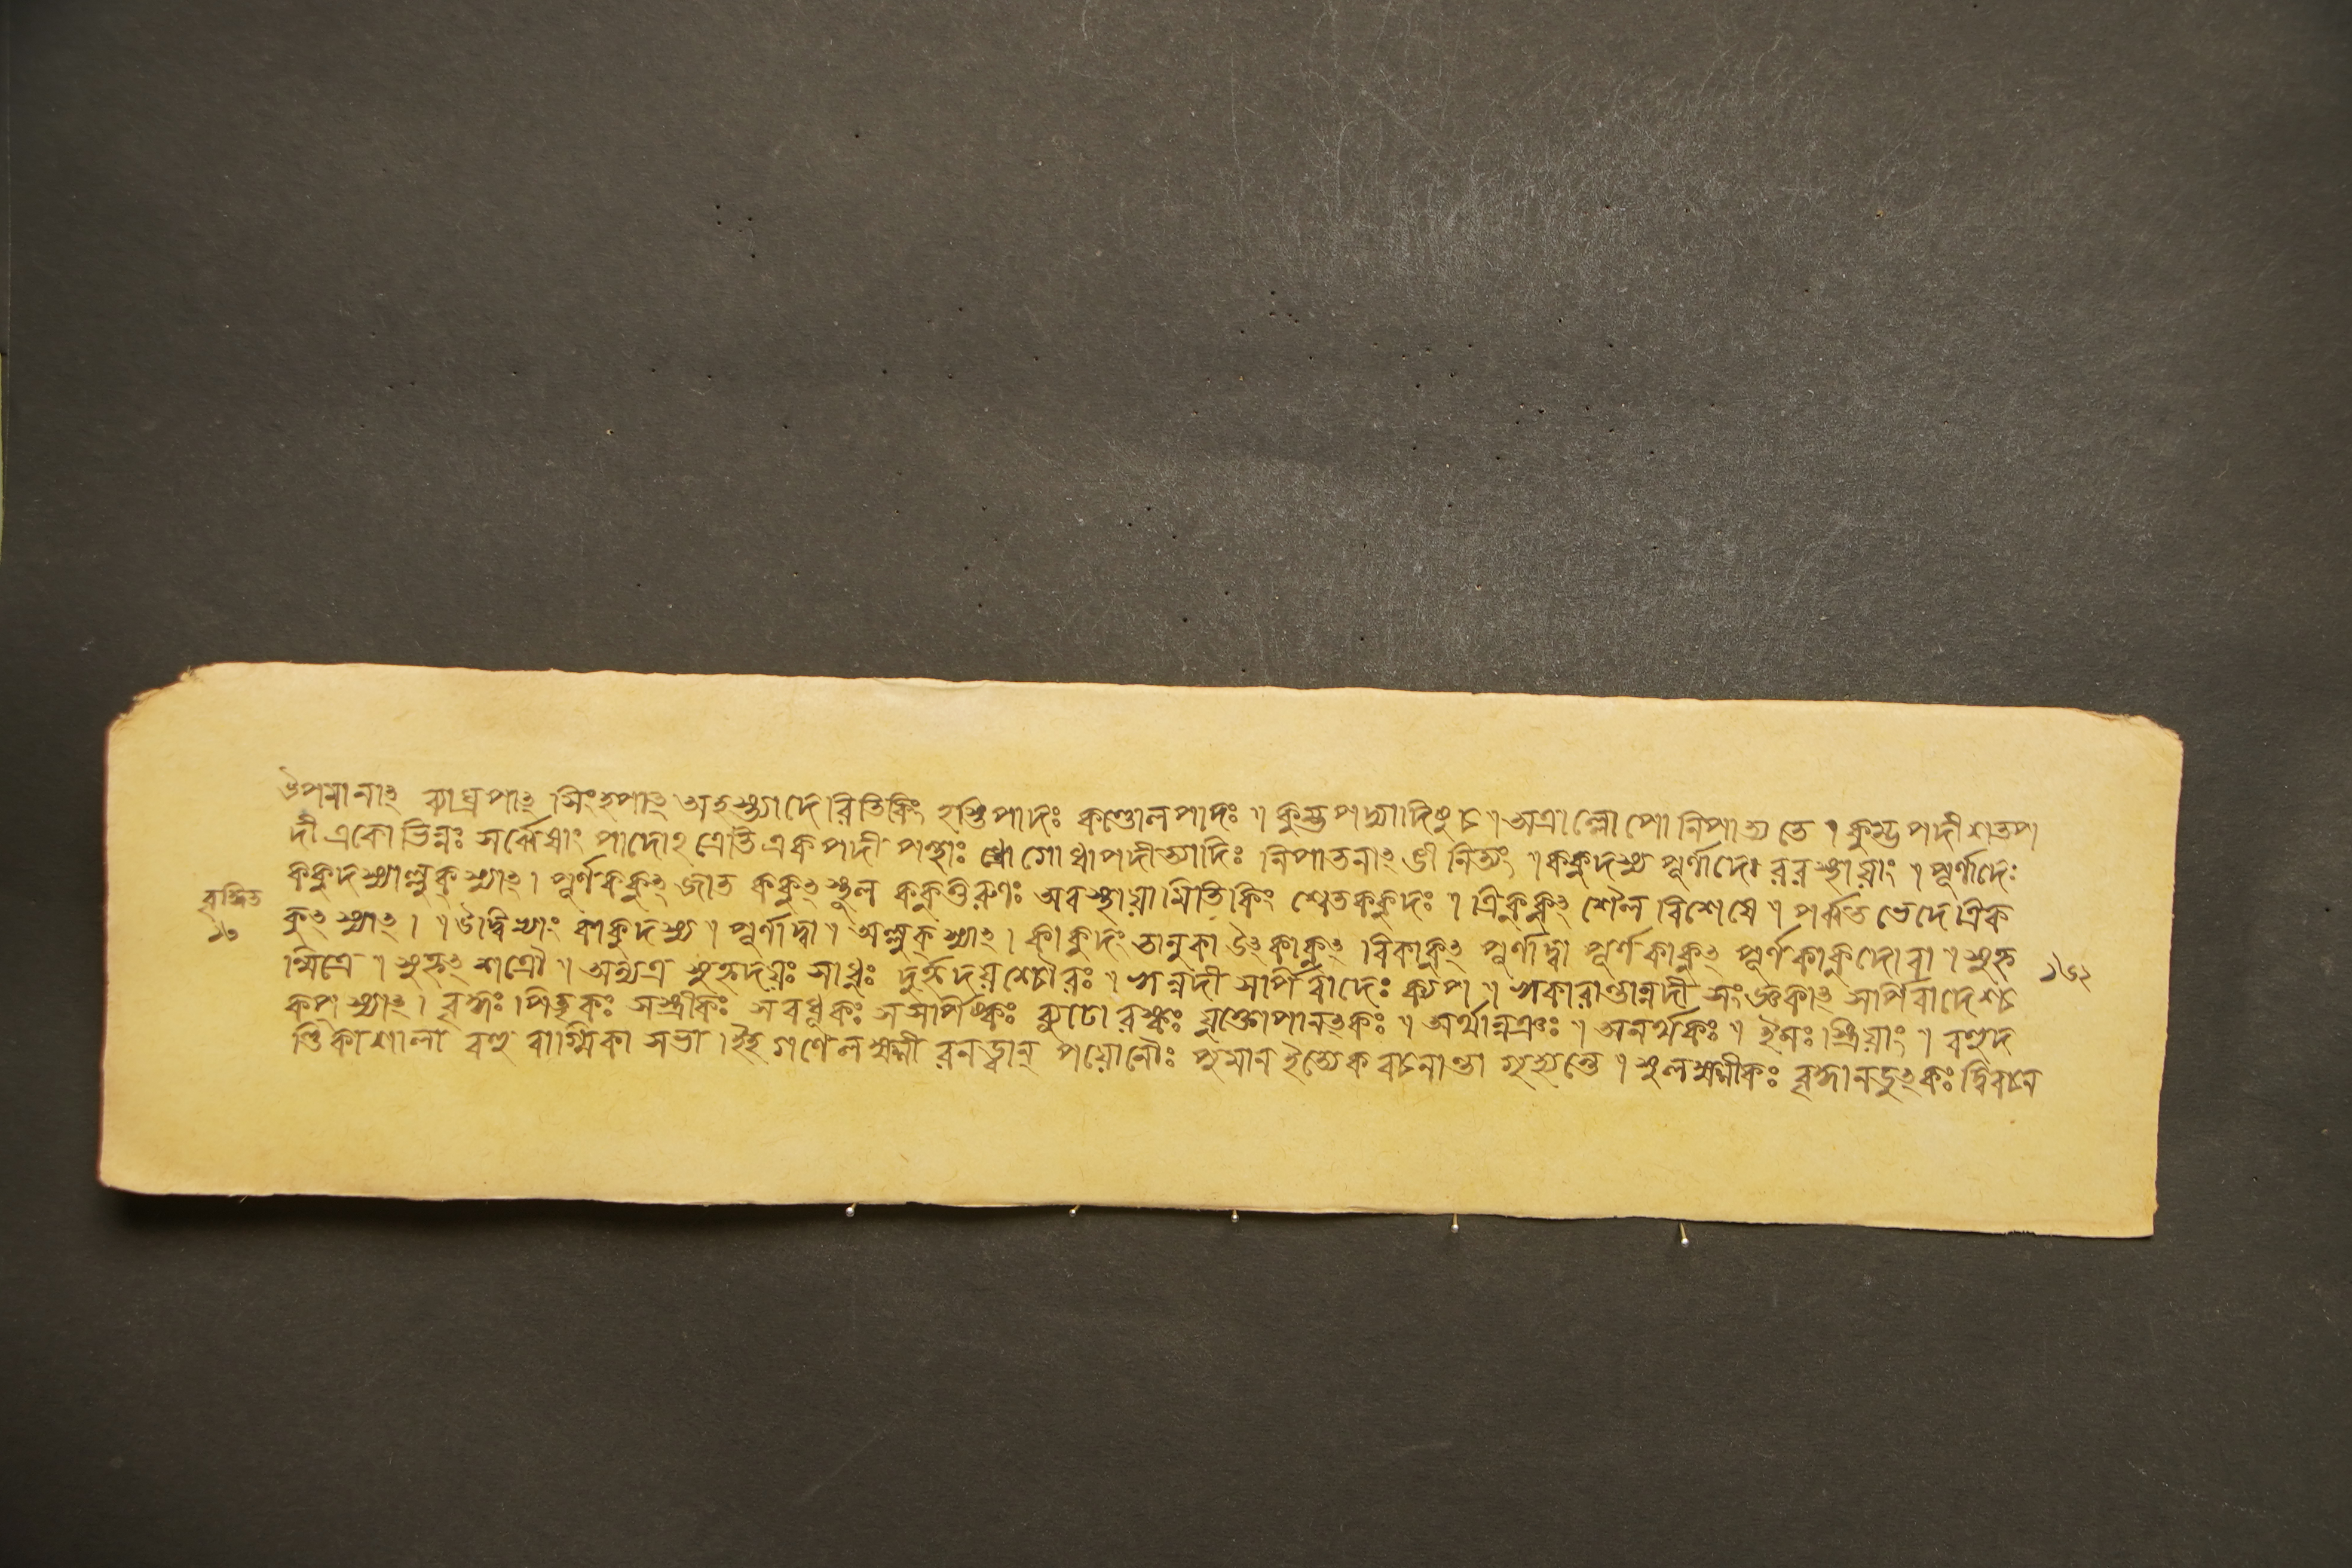 উপমানাৎ ব্যাঘ্রপাৎ সিংহপাৎ অহস্ত্যাদেরিতিকিং হস্তিপাদঃ কণ্ডোলপাদঃ ॥ কুম্ভপদ্যাদিষু চ ॥ অত্রাল্লোপো নিপাত্যতে ॥ কুম্ভপদী শতপ
দী একো ভিন্নঃ সর্ব্বেষাং পাদোঽত্রেতি একপদী পন্থাঃ গোধাপদীত্যাদিঃ নিপাতনাৎ ঙী নিত্যং ॥ ককুদস্য পূর্ণাদে রবস্থায়াং ॥ পূর্ণাদেঃ
ককুদস্যাল্লুক্ স্যাৎ । পূর্ণককুৎ জাতককুৎ স্থূলককুত্তরুণঃ অবস্থায়ামিতিকিং শ্বেতককুদঃ ॥ ত্রিককুৎ শৈলবিশেষে ॥ পর্ব্বতভেদে ত্রিক
কুৎ স্যাৎ । ॥ উদ্বিভ্যাং কাকুদস্য ॥ পূর্ণাদ্বা ॥ অল্লুক্ স্যাৎ । কাকুদং তালুকা উৎকাকুৎ বিকাকুৎ পূর্ণাদ্বা পূর্ণকাকুৎ পূর্ণকাকুদো বা ॥ সুহৃ
ন্মিত্রে ॥ দুর্হৃৎ শত্রৌ ॥ অন্যত্র সুহৃদয়ঃ সাধুঃ দুর্হৃদয়শ্চৌরঃ ॥ ঋন্নদী সর্পিরাদেঃ কপ্ ॥ ঋকারান্তান্নদীসংজ্ঞকাৎ সর্পিরাদেশ্চ
কপ্ স্যাৎ । বৃদ্ধঃ পিতৃকঃ সস্ত্রীকঃ সবধূকঃ সসর্পিষ্কঃ ব্যূঢোরস্কঃ মুক্তোপানৎকঃ ॥ অর্থান্নঞঃ ॥ অনর্থকঃ ॥ ইনঃ স্ত্রিয়াং ॥ বহুদ
ণ্ডিকা শালা বহুবাগ্মিকা সভা । ইহ গণে লক্ষ্মী রনড্বান্ পয়োনৌঃ পুমান ইত্যেকবচনান্তা গৃহ্যন্তে ॥ সুলক্ষ্মীকঃ বৃদ্ধানডুৎকঃ দ্বিবচনে
১৩
১৬২